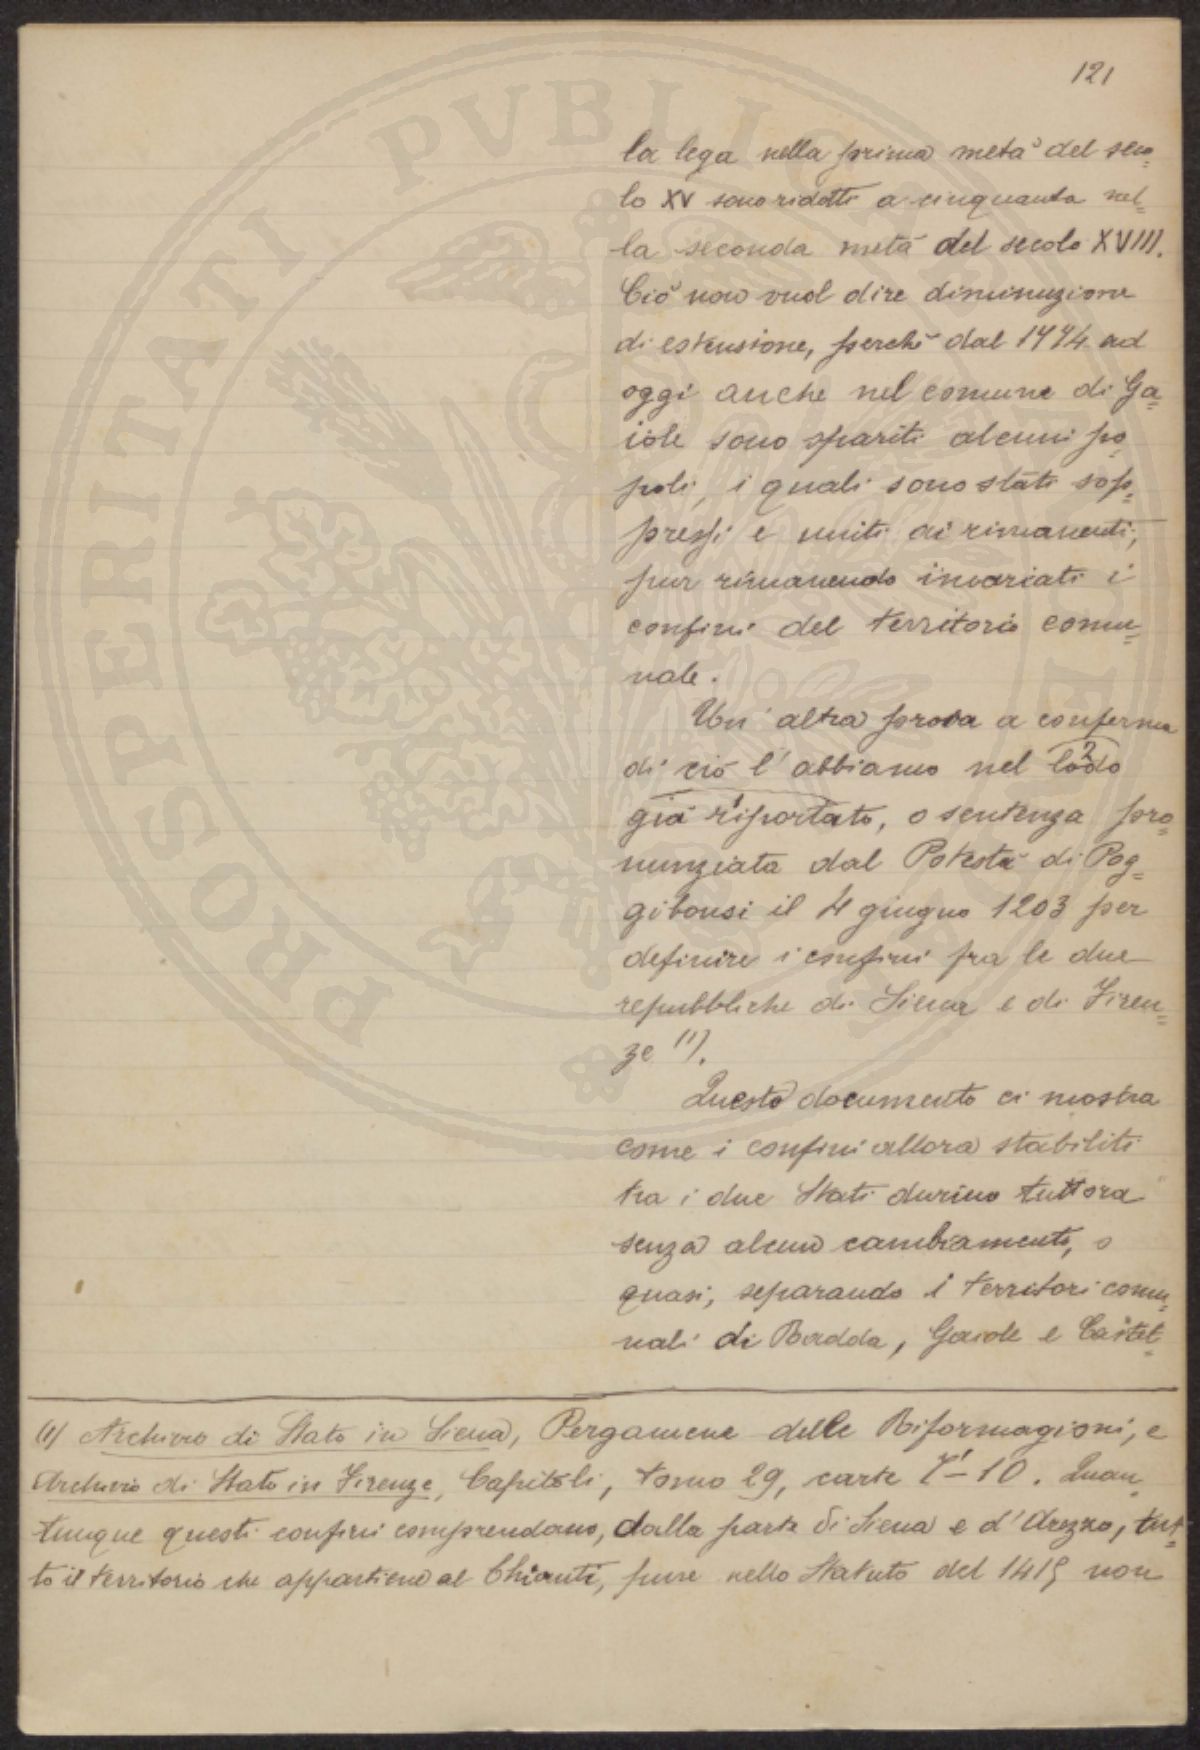 121
la lega nella prima metà del seco=
lo XV sono ridotti a cinquanta nel=
la seconda metà del secolo XVIII.
Ciò non vuol dire diminuzione
di estensione, perchè dal 1774 ad
oggi anche nel comune di Ga=
iole sono spariti alcuni po=
poli, i quali sono stati sop=
pressi e uniti ai rimanenti,
pur rimanendo invariati i
confini del territorio comu=
nale.
Un'altra prova a conferma
di ciò l'abbiamo nel lodo 2
già riportato 1, o sentenza pro=
nunziata dal Potestà di Pog=
gibonsi il 4 giugno 1203 per
definire i confini fra le due
repubbliche di Siena e di Firen=
ze (1).
Questo documento ci mostra
come i confini allora stabiliti
tra i due Stati durino tuttora
senza alcun cambiamento, o
quasi, separando i territori comu=
nali di Radda, Gaiole e Castel=
(1) Archivio di Stato in Siena, Pergamene delle Riformagioni, e
Archivio di Stato in Firenze, Capitoli, tomo 29, carte 7t-10. Quan=
tunque questi confini comprendano, dalla parte di Siena e d'Arezzo, tut=
to il territorio che appartiene al Chianti, pure nello Statuto del 1415 non
PROSPERITATI PVBLICAE